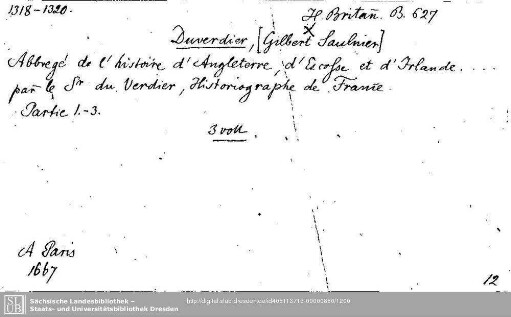 1318-1320.
H. Britañ. B. 627
Duverdier, [Gilbert Saulnier]
Abbregé de l'histoire d'Angleterre, d'Ecosse et d'Irlande. ...
par le Sr du Verdier, Historiographe de France.
Partie 1.-3.
3 voll.
A Paris
1667
12
SLUB
Sächsische Landesbibliothek –
Staats- und Universitätsbibliothek Dresden